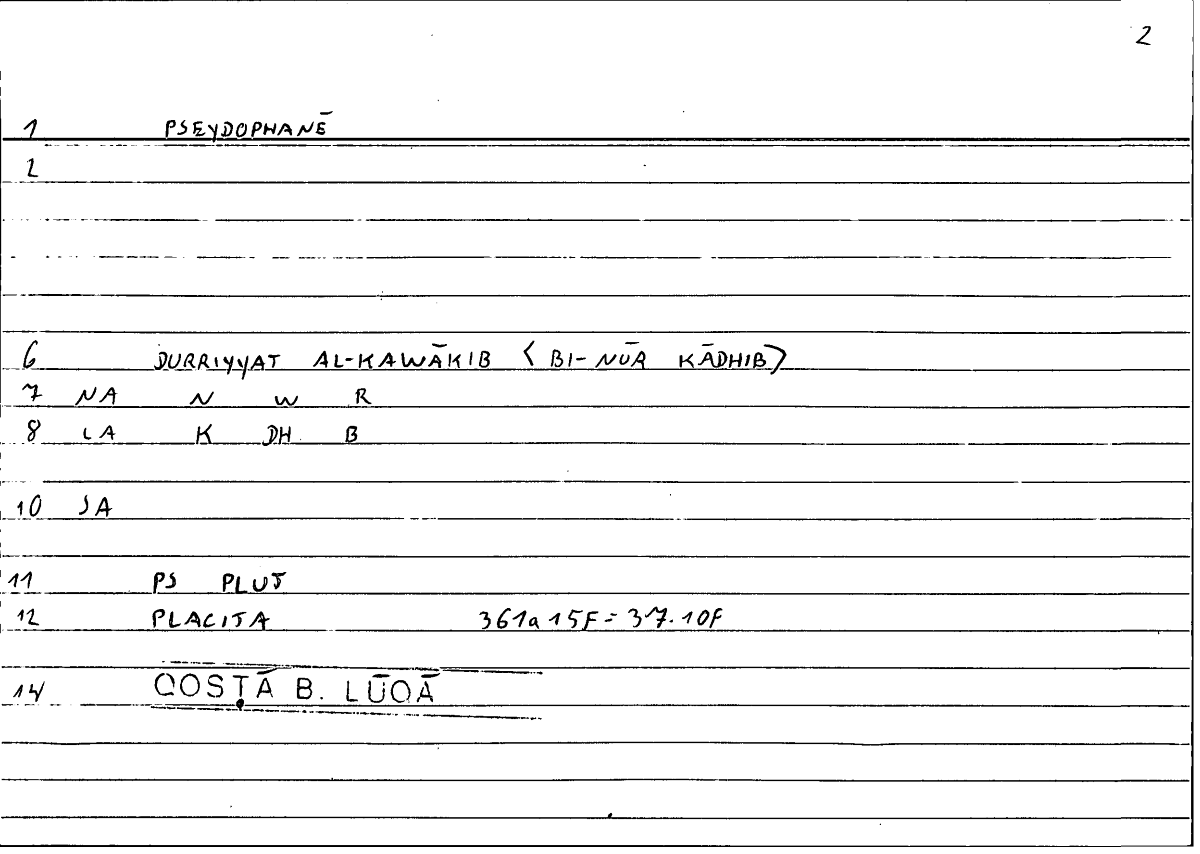 2
1 PSEYDOPHANĒ
2
6 DURRIYYAT AL-KAWĀKIB < BI-NŪR KĀDHIB >
7 NA N W R
8 LA K DH B
10 SA
11 PS PLUT
12 PLACITA 361a15F = 37.10F
14 QOSṬĀ B. LŪQĀ